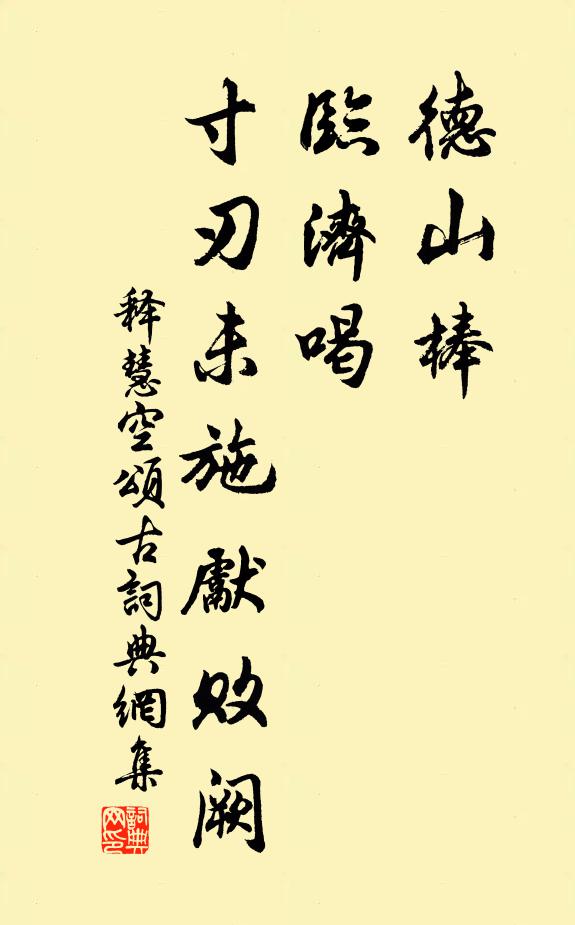 德山棒
臨濟喝
寸刃未施獻敗闕
释慧空頌古詞典網集
詞典网印